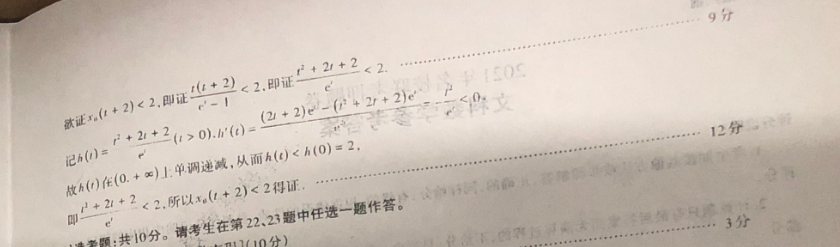 欲证x₀(t+2)<2,即证t(t+2)/(eᵗ-1)<2,即证(t²+2t+2)/eᵗ<2. ………… 9分
记h(t)=(t²+2t+2)/eᵗ(t>0),h'(t)=((2t+2)eᵗ-(t²+2t+2)eᵗ)/e²ᵗ=-t²/eᵗ<0,
故h(t)在(0,+∞)上单调递减,从而h(t)<h(0)=2,
即(t²+2t+2)/eᵗ<2,所以x₀(t+2)<2得证. ………… 12分
选考题:共10分。请考生在第22、23题中任选一题作答。
(10分)
………… 3分